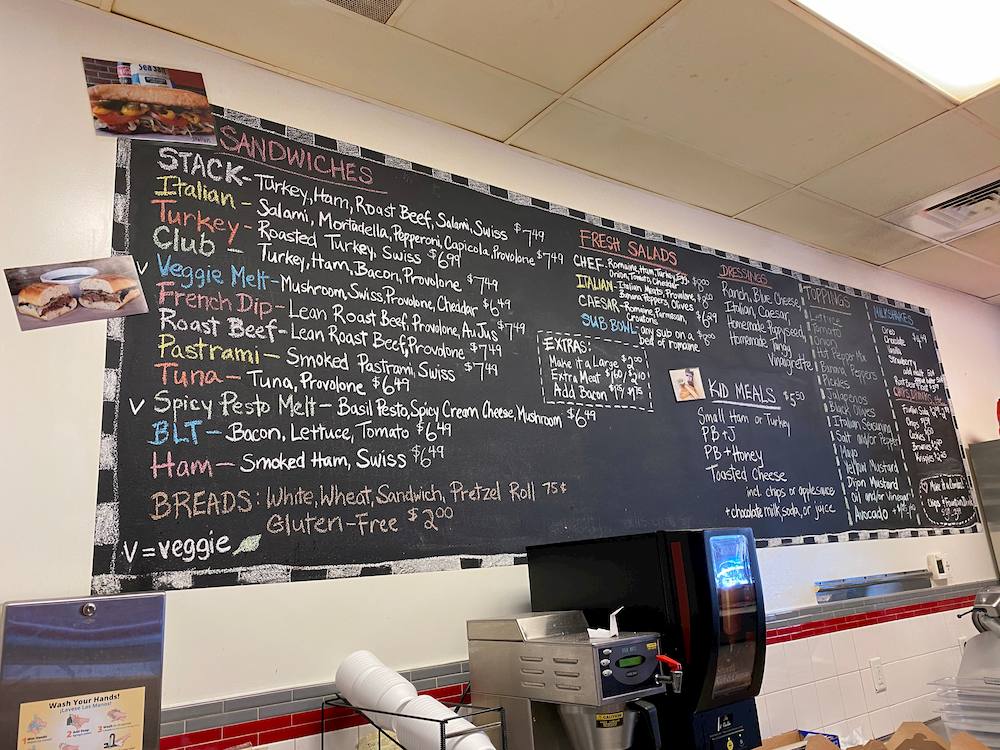 SANDWICHES
STACK - Turkey, Ham, Roast Beef, Salami, Swiss $7.49
Italian - Salami, Mortadella, Pepperoni, Capicola, Provolone $7.49
Turkey - Roasted Turkey, Swiss $6.99
Club - Turkey, Ham, Bacon, Provolone $7.49
V Veggie Melt - Mushroom, Swiss, Provolone, Cheddar $6.49
French Dip - Lean Roast Beef, Provolone, Au Jus $7.49
Roast Beef - Lean Roast Beef, Provolone $7.49
Pastrami - Smoked Pastrami, Swiss $7.49
Tuna - Tuna, Provolone $6.49
V Spicy Pesto Melt - Basil Pesto, Spicy Cream Cheese, Mushroom $6.99
BLT - Bacon, Lettuce, Tomato $6.49
Ham - Smoked Ham, Swiss $6.49
BREADS: White, Wheat, Sandwich, Pretzel Roll 75¢
Gluten-Free $2.00
V = veggie
FRESH SALADS
CHEF - Romaine, Ham, Turkey, Egg
Onion, Tomato, Cheddar
ITALIAN - Italian Meats, Provolone
Banana Peppers, Olives
CAESAR - Romaine, Parmesan,
Croutons $6.29
SUB BOWL any sub on a
bed of romaine
EXTRAS:
Make it a Large
Extra Meat
Add Bacon
KID MEALS $5.50
Small Ham or Turkey
PB + J
PB + Honey
Toasted Cheese
incl. chips or applesauce
+ chocolate milk, soda, or juice
DRESSINGS
Ranch, Blue Cheese,
Italian, Caesar,
Homemade Poppyseed,
Homemade Tangy
Vinaigrette
TOPPINGS
Lettuce
Tomato
Onion
Hot Pepper Mix
Banana Peppers
Pickles
Jalapenos
Black Olives
Italian Seasoning
Salt and/or Pepper
Mayo
Yellow Mustard
Dijon Mustard
Oil and/or Vinegar
Avocado
MILKSHAKES
Oreo
Chocolate
Vanilla
Strawberry
add malt
Root Beer Float
Fountain Soda
Chips
Cookies
Brownies
Krispies
Wash Your Hands!
¡Lavese Las Manos!